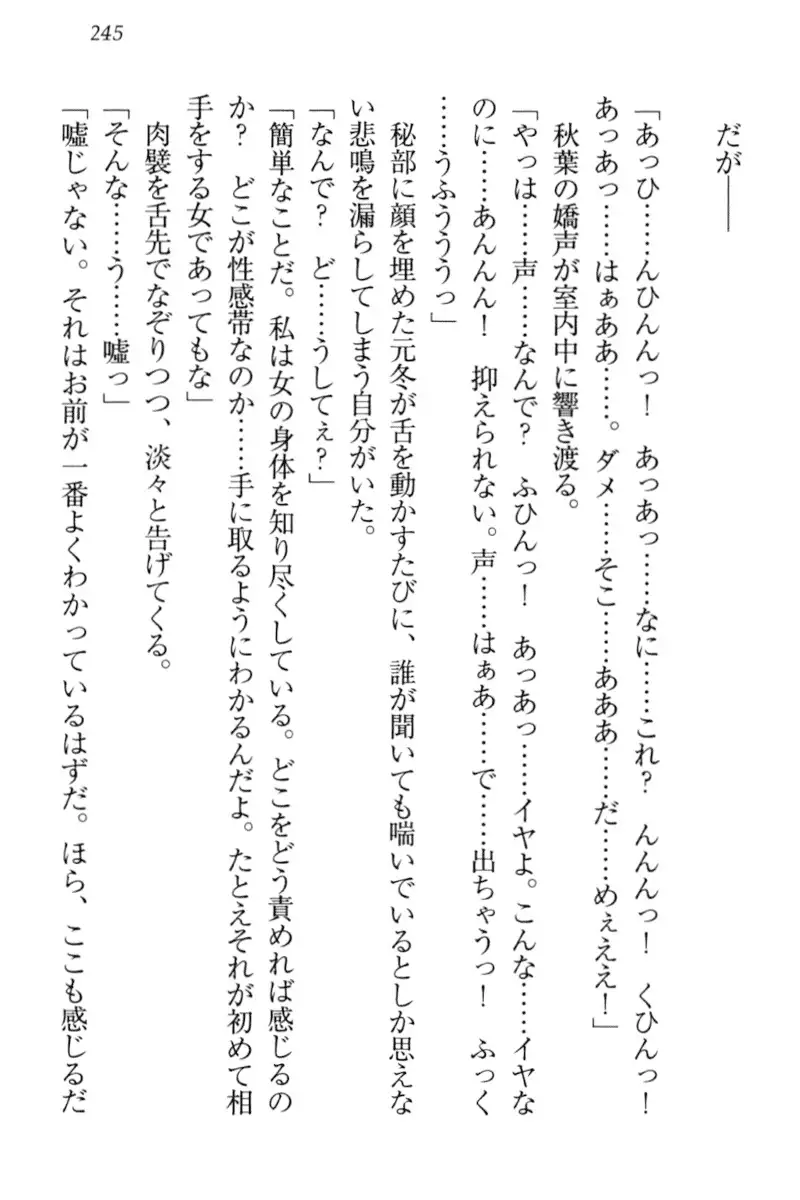 245
だが――
「あっひ……んひんんっ！　あっあっ……なに……これ？　んんんっ！　くひんっ！
あっあっ……はぁああ……。ダメ……そこ……あああ……だ……めぇええ！」
秋葉の嬌声が室内中に響き渡る。
「やっは……声……なんで？　ふひんっ！　あっあっ……イヤよ。こんな……イヤな
のに……あんんん！　抑えられない。声……はぁあ……で……出ちゃうっ！　ふっく
……うふうううっ」
秘部に顔を埋めた元冬が舌を動かすたびに、誰が聞いても喘いでいるとしか思えな
い悲鳴を漏らしてしまう自分がいた。
「なんで？　ど……うしてぇ？」
「簡単なことだ。私は女の身体を知り尽くしている。どこをどう責めれば感じるの
か？　どこが性感帯なのか……手に取るようにわかるんだよ。たとえそれが初めて相
手をする女であってもな」
肉襞を舌先でなぞりつつ、淡々と告げてくる。
「そんな……う……嘘っ」
「嘘じゃない。それはお前が一番よくわかっているはずだ。ほら、ここも感じるだ